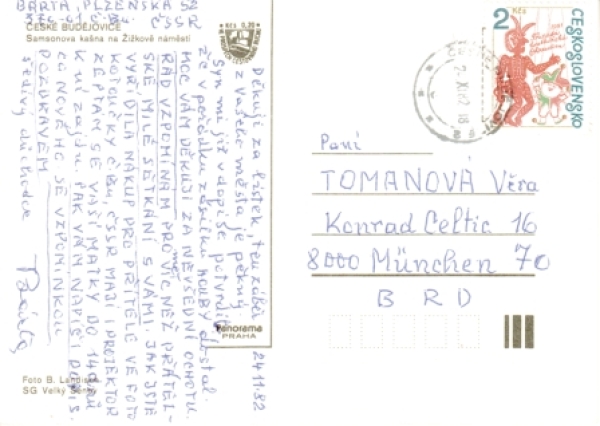 BÁRTA, PLZEŇSKÁ 52
370-01 Č. Bu. ČSSR
ČESKÉ BUDĚJOVICE
Samsonova kašna na Žižkově náměstí
Kčs 0,20
Děkuji za lístek, ten záběr
z vašeho města je pěkný.
Syn mi již v dopise potvrdil,
že v pořádku zásilku houby dostal.
MOC VÁM DĚKUJI ZA NEVŠEDNÍ OCHOTU.
RÁD VZPOMÍNÁM PRO VÍC NEŽ PŘÁTEL-
SKÉ MILÉ SETKÁNÍ S VÁMI. JAK JSTE
VYŘÍDILA NÁKUP PRO PŘÍTELE VE FOTO
KOTOUČKY Č. BU, ČSSR MAJÍ I PROJEKTOR
ZEPTÁM SE VAŠÍ MATKY DO 14 DNŮ
K NÍ ZAJDU. PAK VÁM NAPÍŠI DOPIS.
CO NOVÉHO SE VZPOMÍNKOU
POZDRAVEM
šedivý důchodce
Bárta
24.11.82
Panorama
PRAHA
Foto B. Landisch
SG Velký Šenov
2 Kčs
ČESKOSLOVENSKO
Paní
TOMANOVÁ Věra
Konrad Celtic 16
8000 München 70
B R D